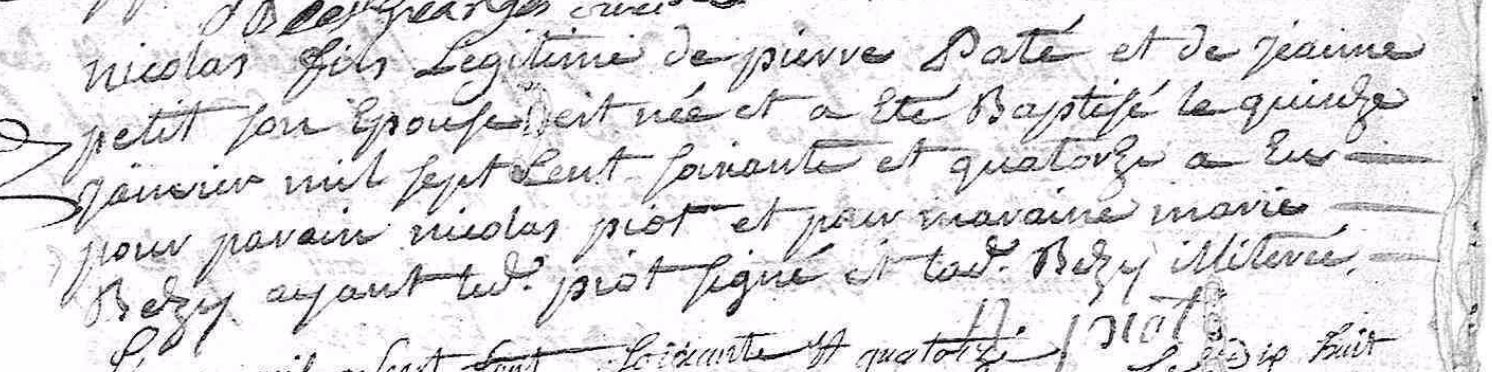 nicolas fils Legitime de pierre Paté et de jeanne
petit son Epouse est née et a Eté Baptisé le quinze
janvier mil sept Cent soixante et quatorze a Eu
pour parain nicolas piot et pour maraine marie
Bezy ayant led. piot signé et lad. Bezy illiterée.
N piot
mil sept Cent soixante et quatorze Le dix huit